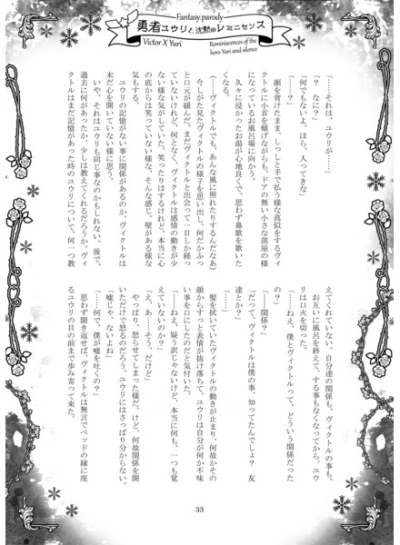 Fantasy.parody
勇者ユウリと沈黙のレミニセンス
Victor X Yuri
Reminiscences of the
hero Yuri and silence
「……それは、ユウリが……」
「？　なに？」
「何でもないよ。ほら、入ってきな」
「……？」
　顔を背けたまま、しっしと手で払う様な真似をするヴィ
クトルに小首を傾げながらも、ドアの無い小さな部屋の様
になっているお風呂場に向かう。
　久々に浸かったお湯が心地良くて、思わず鼻歌を歌いた
くなる。
（……ヴィクトルでも、あんな風に照れたりするんだなあ）
　今しがた見たヴィクトルの様子を思い出し、何だかふっ
と口元が緩んだ。まだヴィクトルと出会って一日しか経っ
ていないけれど、何となく、ヴィクトルは感情の動きが少
ない様な気がしていた。笑ったりはするけれど、本当に心
の底からは笑っていない様な、そんな感じ。壁がある様な
気もする。
　ユウリの記憶がない事に関係があるのか、ヴィクトルは
未だ心を開いていない様に思う。
　いや、それはユウリも同じ事なのかもしれない。後で、
過去に何があったか、少しは教えてくれるだろうか。ヴィ
クトルはまだ記憶があった時のユウリについて、何一つ教
えてくれていない。自分達の関係も、ヴィクトルの事も。
　お互いに風呂を終えて、する事もなくなってから、ユウ
リは口火を切った。
「……ねえ、僕とヴィクトルって、どういう関係だった
の？」
「……関係？」
「だって、ヴィクトルは僕の事、知ってたんでしょ？　友
達とか？」
「……」
　髪を拭いていたヴィクトルの動きが止まり、何故かその
顔からすっと表情が抜け落ちて、ユウリは自分が何か不味
い事を口にしたのだと気付いた。
「……ねえ、疑う訳じゃないけど、本当に何も、一つも覚
えていないのか？」
「え、あ……そう、だけど」
　やっぱり、怒らせてしまった様だ。けど、何故関係を聞
いただけで怒るのだろう、ユウリにはさっぱり分からない。
「嘘じゃ、ないよね」
「……何で、僕が嘘を吐くの？」
　思わず聞き返せば、ヴィクトルは無言でベッドの縁に座
るユウリの目の前まで歩み寄って来た。
33